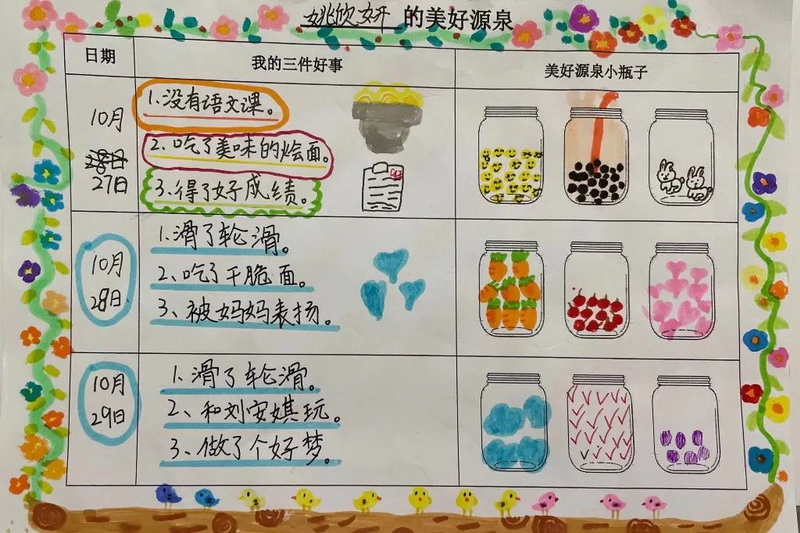 姚欣妍 的美好源泉
日期
我的三件好事
美好源泉小瓶子
10月
27日
1、没有语文课。
2、吃了美味的烩面。
3、得了好成绩。
10月
28日
1、滑了轮滑。
2、吃了干脆面。
3、被妈妈表扬。
10月
29日
1、滑了轮滑。
2、和刘安娸玩。
3、做了个好梦。